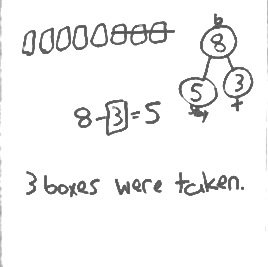 b
8
5 3
t
8-3=5
3 boxes were taken.